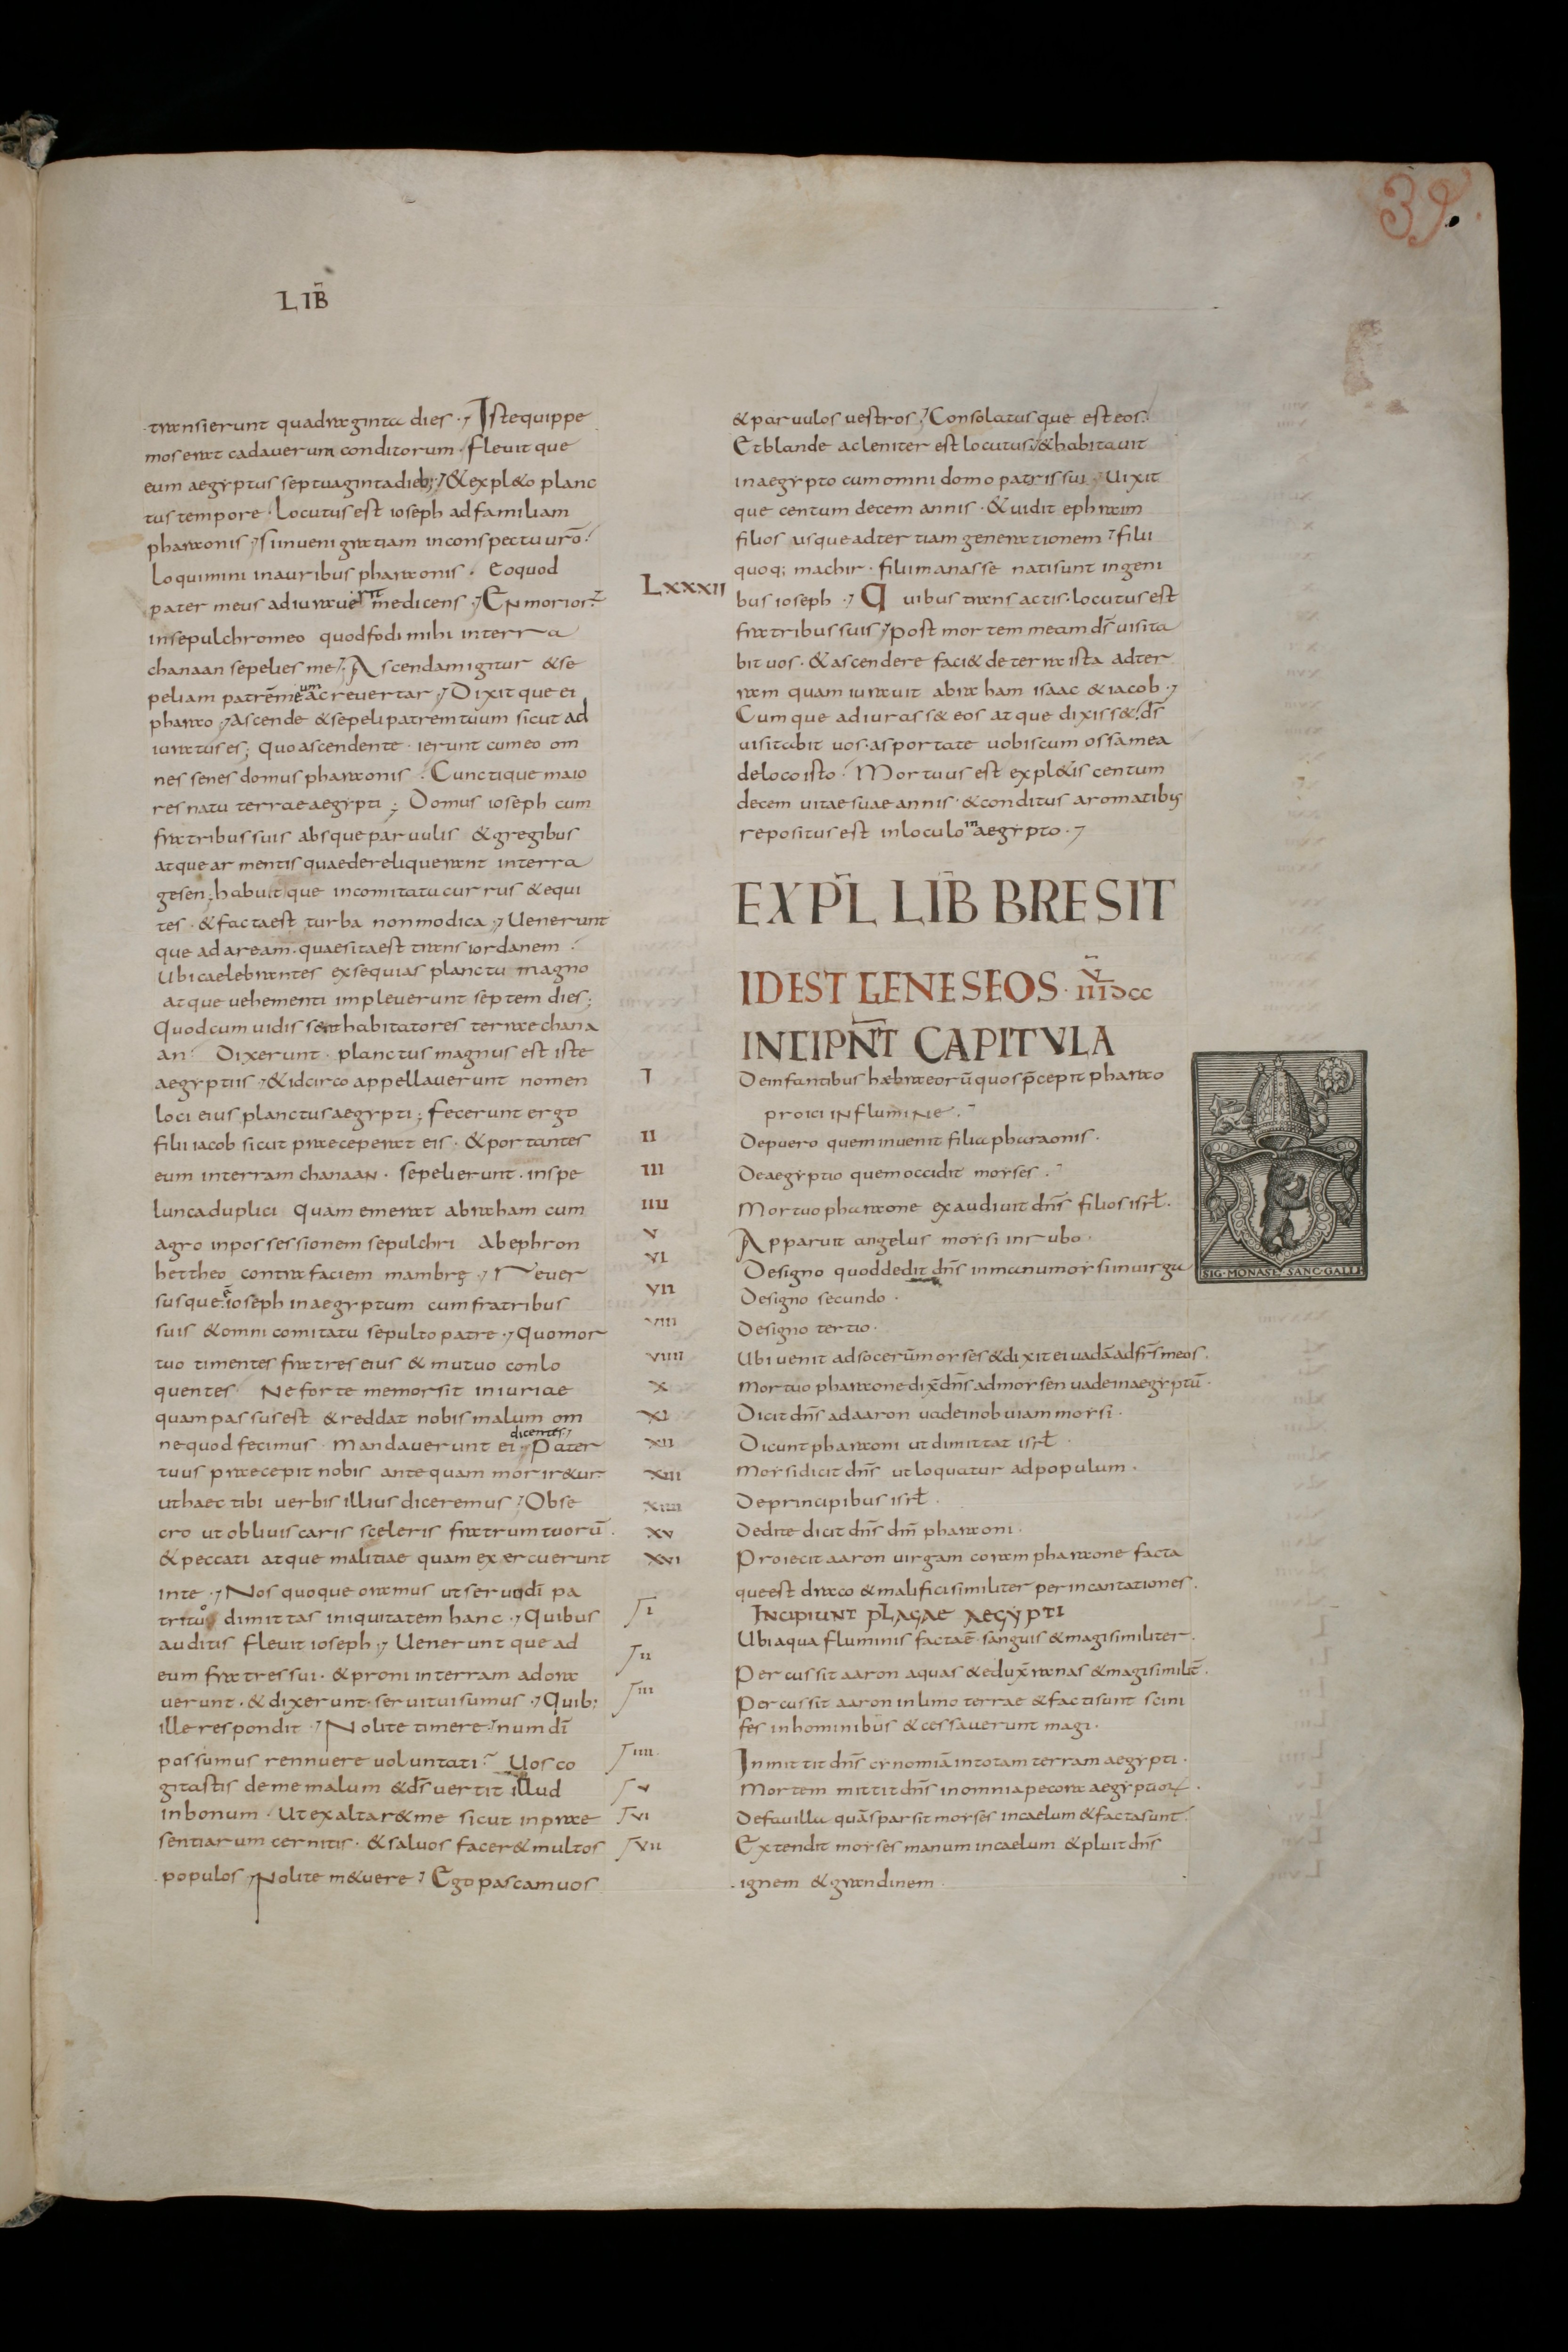 39.
LIB̄
transierunt quadraginta dies · Iste quippe
mos erat cadaverum conditorum · flevit que
eum aegyptus septuaginta dieb; & expl&o planc
tus tempore · Locutus est ioseph ad familiam
pharaonis si inveni gratiam in conspectu uro̅
Loquimini in auribus pharaonis · Eo quod
pater meus adiuraverit me dicens · En morior
in sepulchro meo quod fodi mihi in terra
chanaan sepelies me ; Ascendam igitur & se
peliam patre̅ meum ac revertar · Dixit que ei
pharao · Ascende & sepeli patrem tuum sicut ad
iuratus es ; quo ascendente · ierunt cum eo om
nes senes domus pharaonis · Cunctique maio
res natu terrae aegypti ; Domus ioseph cum
fratribus suis absque parvulis & gregibus
atque armentis quae dereliquerant in terra
gesen ; habuit que in comitatu currus & equi
tes · & facta est turba non modica · Uenerunt
que ad aream · quae sita est trans iordanem
Ubi caelebrantes exsequias planctu magno
atque vehementi impleverunt septem dies ;
Quod cum vidissent habitatores terrae chana
an Dixerunt · planctus magnus est iste
aegyptiis · & idcirco appellaverunt nomen
loci eius planctus aegypti ; fecerunt ergo
filii iacob sicut praeceperat eis · & portantes
eum in terram chanaan · sepelierunt · in spe
lunca duplici quam emerat abraham cum
agro in possessionem sepulchri Ab ephron
hettheo contra faciem mambrę · Rever
susque e̅ ioseph in aegyptum cum fratribus
suis & omni comitatu sepulto patre · quo mor
tuo timentes fratres eius & mutuo conlo
quentes · Ne forte memor sit iniuriae
quam passus est & reddat nobis malum om
ne quod fecimus · Mandaverunt ei dicentes · Pater
tuus praecepit nobis ante quam morir&ur
ut haec tibi verbis illius diceremus · Obse
cro ut obliviscaris sceleris fratrum tuoru̅ ·
& peccati atque malitiae quam exercuerunt
in te · Nos quoque oramus ut servo di̅ pa
tri tuo dimittas iniquitatem hanc · Quibus
auditis flevit ioseph · Uenerunt que ad
eum fratres sui · & proni in terram adora
verunt · & dixerunt · servi tui sumus · Quib;
ille respondit · Nolite timere · num di̅
possumus rennuere voluntati · Uos co
gitastis de me malum & ds̅ vertit illud
in bonum · Ut exaltar& me sicut in prae
sentiarum cernitis · & salvos facer& multos
populos · Nolite m&uere · Ego pascam vos
& parvulos vestros · Consolatusque est eos
Et blande ac leniter est locutus · & habitavit
in aegypto cum omni domo patris sui · Uixit
que centum decem annis · & vidit ephraim
filios usque ad tertiam generationem · filii
quoq; machir · filii manasse nati sunt in geni
LXXXII bus ioseph · Quibus transactis · locutus est
fratribus suis · post mortem meam ds̅ visita
bit vos · & ascendere faci& de terra ista ad ter
ram quam iuravit abraham isaac & iacob ·
Cumque adiurass& eos atque dixiss& · ds̅
visitabit vos · asportate vobiscum ossa mea
de loco isto · Mortuus est expl&is centum
decem vitae suae annis · & conditus aromatibus
repositus est in loculo in aegypto ·
EXPL̅ LIB̅ BRESIT
IDEST GENESEOS · IIIDCC
INCIPN̅T CAPITVLA
I De infantibus hæbraeoru̅ quos p̅cepit pharao
proici in flumine ·
II De puero quem invenit filia pharaonis ·
III De aegyptio quem occidit moyses ·
IIII Mortuo pharaone exaudivit dn̅s filios isrl̅ ·
V Apparuit angelus moysi in rubo ·
VI De signo quod dedit dn̅s in manu moysi in virga
VII De signo secundo ·
VIII De signo tertio ·
VIIII Ubi venit ad soceru̅ moyses & dixit ei vada̅ ad frs̅ meos ·
X Mortuo pharaone dix̅ dn̅s ad moysen vade in aegyptu̅ ·
XI Dicit dn̅s ad aaron vade in obviam moysi ·
XII Dicunt pharaoni ut dimittat isrl̅ ·
XIII Moysi dicit dn̅s ut loquatur ad populum ·
XIIII De principibus isrl̅ ·
XV Dedi te dicit dn̅s dm̅ pharaoni ·
XVI Proiecit aaron virgam coram pharaone facta
que est draco & malifici similiter per incantationes ·
INCIPIUNT PLAGAE AEGYPTI
I Ubi aqua fluminis facta e̅ sanguis & magi similiter ·
II Percussit aaron aquas & edux̅ ranas & magi similit̅ ·
III Percussit aaron in limo terrae & facti sunt scini
fes in hominibus & cessaverunt magi ·
IIII Inmittit dn̅s cynomia̅ in totam terram aegypti ·
V Mortem mittit dn̅s in omnia pecora aegyptior ·
VI De favilla qua̅ sparsit moyses in caelum & facta sunt
VII Extendit moyses manum in caelum & pluit dn̅s
ignem & grandinem ·
SIG · MONAST · SANC · GALLI